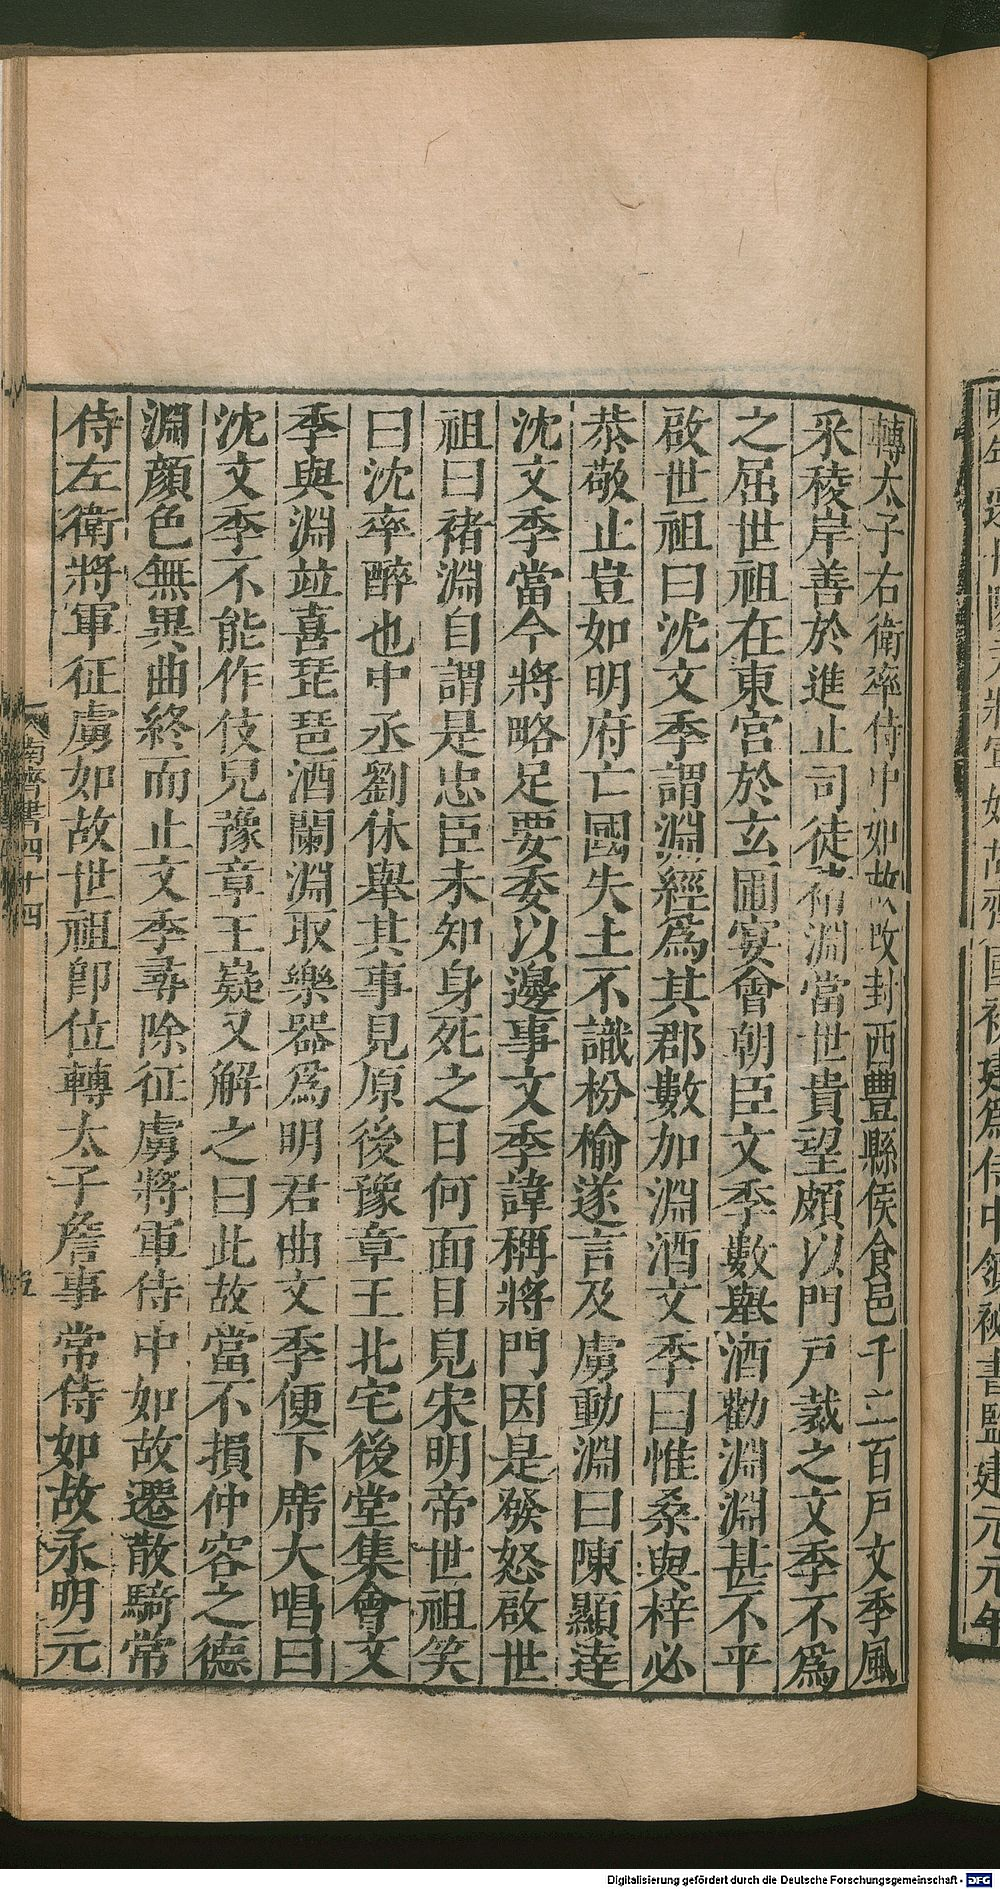 轉太子右衛率侍中如故改封西豐縣侯食邑千二百戸文季風
采稜岸善於進止司徒褚淵當世貴望頗以門戸裁之文季不爲
之屈世祖在東宮於玄圃宴會朝臣文季數舉酒勸淵淵甚不平
啟世祖曰沈文季謂淵經爲其郡數加淵酒文季曰惟桑與梓必
恭敬止豈如明府亡國失土不識枌榆遂言及虜動淵曰陳顯達
沈文季當今將略足要委以邊事文季諱稱將門因是發怒啟世
祖曰褚淵自謂是忠臣未知身死之日何面目見宋明帝世祖笑
曰沈率醉也中丞劉休舉其事見原後豫章王北宅後堂集會文
季與淵竝喜琵琶酒闌淵取樂器爲明君曲文季便下席大唱曰
沈文季不能作伎兒豫章王嶷又解之曰此故當不損仲容之德
淵顔色無異曲終而止文季尋除征虜將軍侍中如故遷散騎常
侍左衛將軍征虜如故世祖卽位轉太子詹事常侍如故永明元
南齊書四十四
五
故齊國初建爲侍中領祕書監建元元年
Digitalisierung gefördert durch die Deutsche Forschungsgemeinschaft - DFG